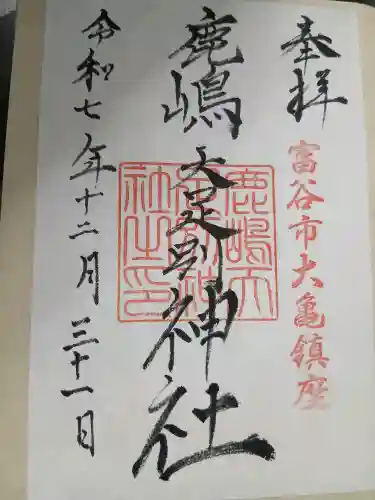 奉拝
富谷市大亀鎮座
鹿嶋天足別神社
鹿嶋天足別神社之印
令和七年十二月三十一日